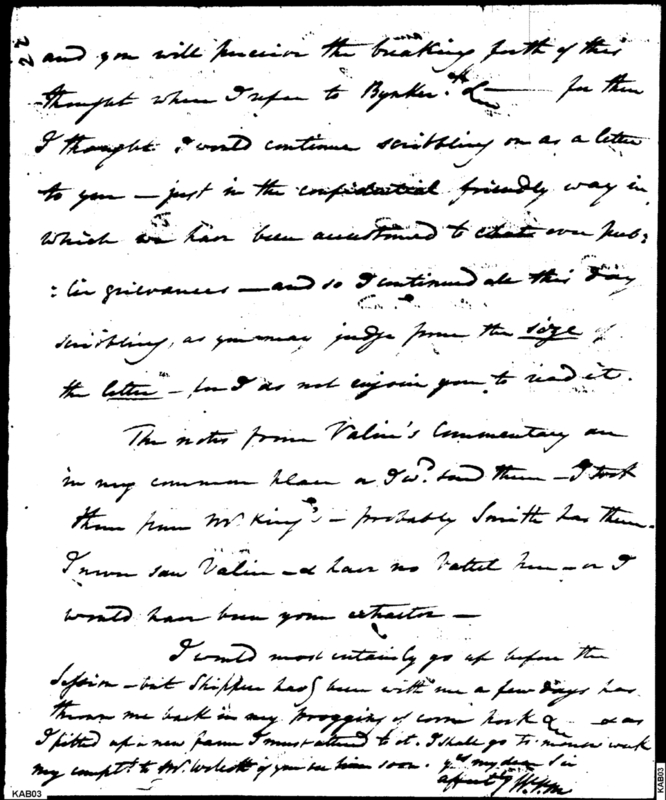 22
and you will perceive the breaking forth of this
thought where I refer to Bynker.ˢʰ &c — for then
I thought I would continue scribbling on as a letter
to you — just in the confidential friendly way in
which we have been accustomed to chat over pub=
=lic grievances — and so I continued all this day
scribbling, as you may judge from the size of
the letter — but I do not enjoin you to read it.
The notes from Valin's Commentary are
in my common place or I wᵈ. send them — I took
them from Mr King's — probably Smith has them.
I never saw Valin — & have no Vattel here — or I
would have been your extractor —
I would most certainly go up before the
Session — but Shippen has been with me a few days has
thrown me back in my progging of corn pork &c — & as
I fitted up a new farm I must attend to it. I shall go to-morrow week
my complᵗˢ to Mr. Wolcott if you see him soon. yʳˢ my dear Sir
affectʸ
KAB03
KAB03